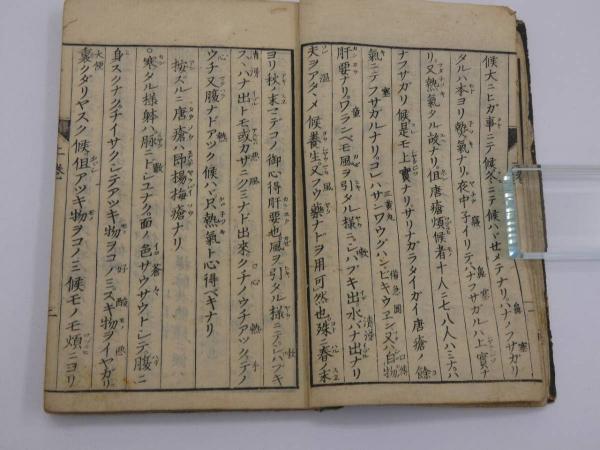 候大ニヒガ事ニテ候冬ニテ候ハヾセメテナリハナノフサガリ
タルハ本ヨリ熱氣ナリ夜中子イリテハナフサガルハ上實ナ
リ又熱氣タル故ナリ但唐瘡煩候者十人ニ七八人ハミナハ
ナフサガリ候是モ上實ナリサリナガラタイガイ唐瘡ノ餘
氣ニテフサガルナリコレハサンワウグハンビキウヱン又ハ
肝要ナリワランベモ風ヲ引タル様ニシハブキ出水バナ出ナリ
夫ヲアダヽメ候養生又フウ藥ナドヲ用可然也殊ニ春ノ末
ヨリ秋ノ末マデコノ御心得肝要也風ヲ引タル様ニテシハブキ
スヽバナ出トモ或カザニクミナド出來クチノウチアツクシテテノ
ウチ又腹ナドアツク候ハヾ只熱氣ト心得ベキナリ
按ズルニ唐瘡ハ即揚梅瘡ナリ
○寒タル様躰ハ脉ニドシユナク面ノ色サウサウトシテ腹ニ
身スクナクチイサクシテアツキ物ヲコノミスキ物ヲイヤガリ
裏クダリヤスク候但アツキ物ヲコノミ候モノモ煩ニヨリ